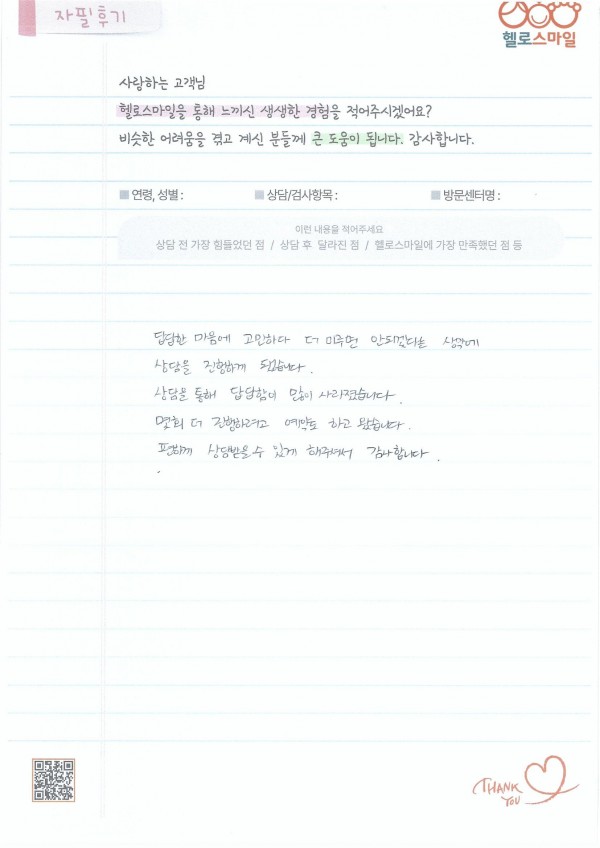 자필후기
헬로스마일
사랑하는 고객님
헬로스마일을 통해 느끼신 생생한 경험을 적어주시겠어요?
비슷한 어려움을 겪고 계신 분들께 큰 도움이 됩니다. 감사합니다.
연령, 성별 : 상담/검사항목 : 방문센터명 :
이런 내용을 적어주세요
상담 전 가장 힘들었던 점 / 상담 후 달라진 점 / 헬로스마일에 가장 만족했던 점 등
답답한 마음에 고민하다 더 미루면 안되겠다는 생각에
상담을 진행하게 됐습니다.
상담을 통해 답답함이 많이 사라졌습니다.
몇회 더 진행하려고 예약도 하고 왔습니다.
편하게 상담받을수 있게 해주셔서 감사합니다.
THANK
YOU